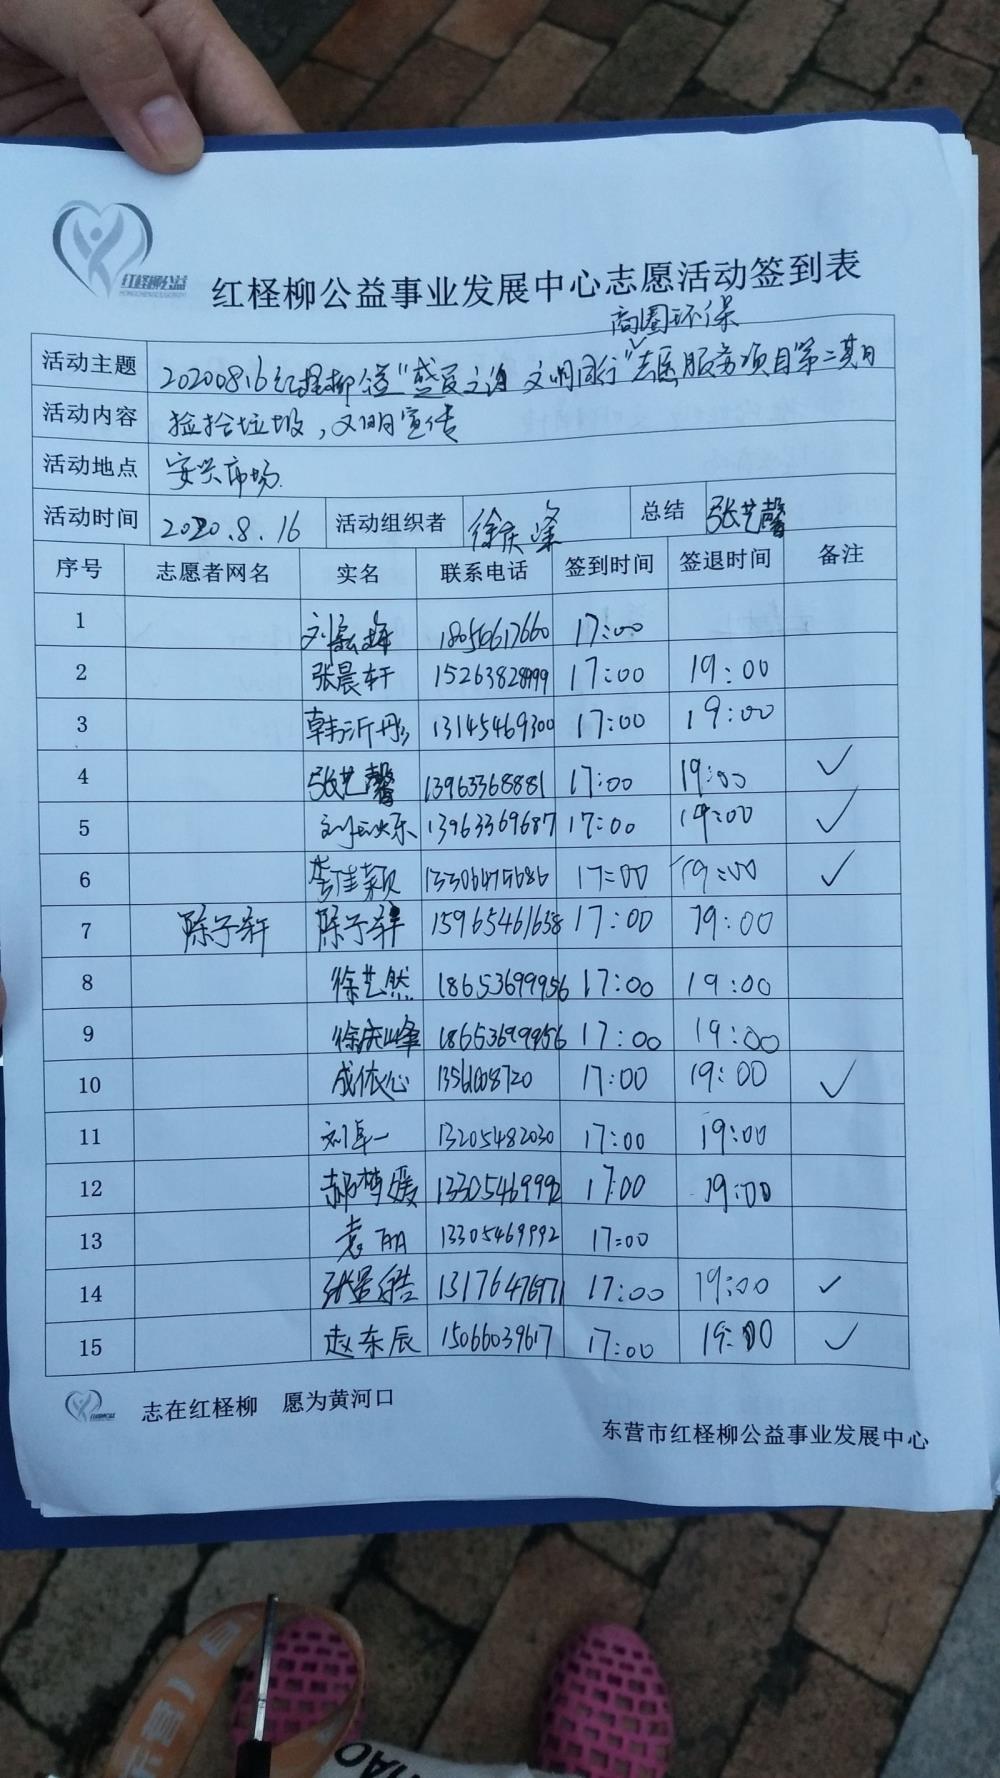 红柽柳公益
红柽柳公益事业发展中心志愿活动签到表
商圈环保
活动主题 20200816红柽柳公益 文明同行"志愿服务项目第二期
活动内容 捡拾垃圾,文明宣传
活动地点 安兴市场
活动时间 2020.8.16 活动组织者 徐庆 总结 张艺馨
序号 志愿者网名 实名 联系电话 签到时间 签退时间 备注
1 17:00
2 张晨轩 15263828999 17:00 19:00
3 韩沂彤 13145469300 17:00 19:00
4 张艺馨 13963368881 17:00 19:00 ✓
5 13963369687 17:00 19:00 ✓
6 李佳颖 17:00 19:00 ✓
7 陈子轩 陈子轩 15965461638 17:00 19:00
8 徐艺然 18653699956 17:00 19:00
9 徐庆峰 18653699956 17:00 19:00
10 成依心 17:00 19:00 ✓
11 刘卓一 13205482030 17:00 19:00
12 郝梦媛 13305469992 17:00 19:00
13 袁丽 13305469992 17:00
14 17:00 19:00 ✓
15 赵东辰 15066039617 17:00 19:00 ✓
志在红柽柳 愿为黄河口
东营市红柽柳公益事业发展中心